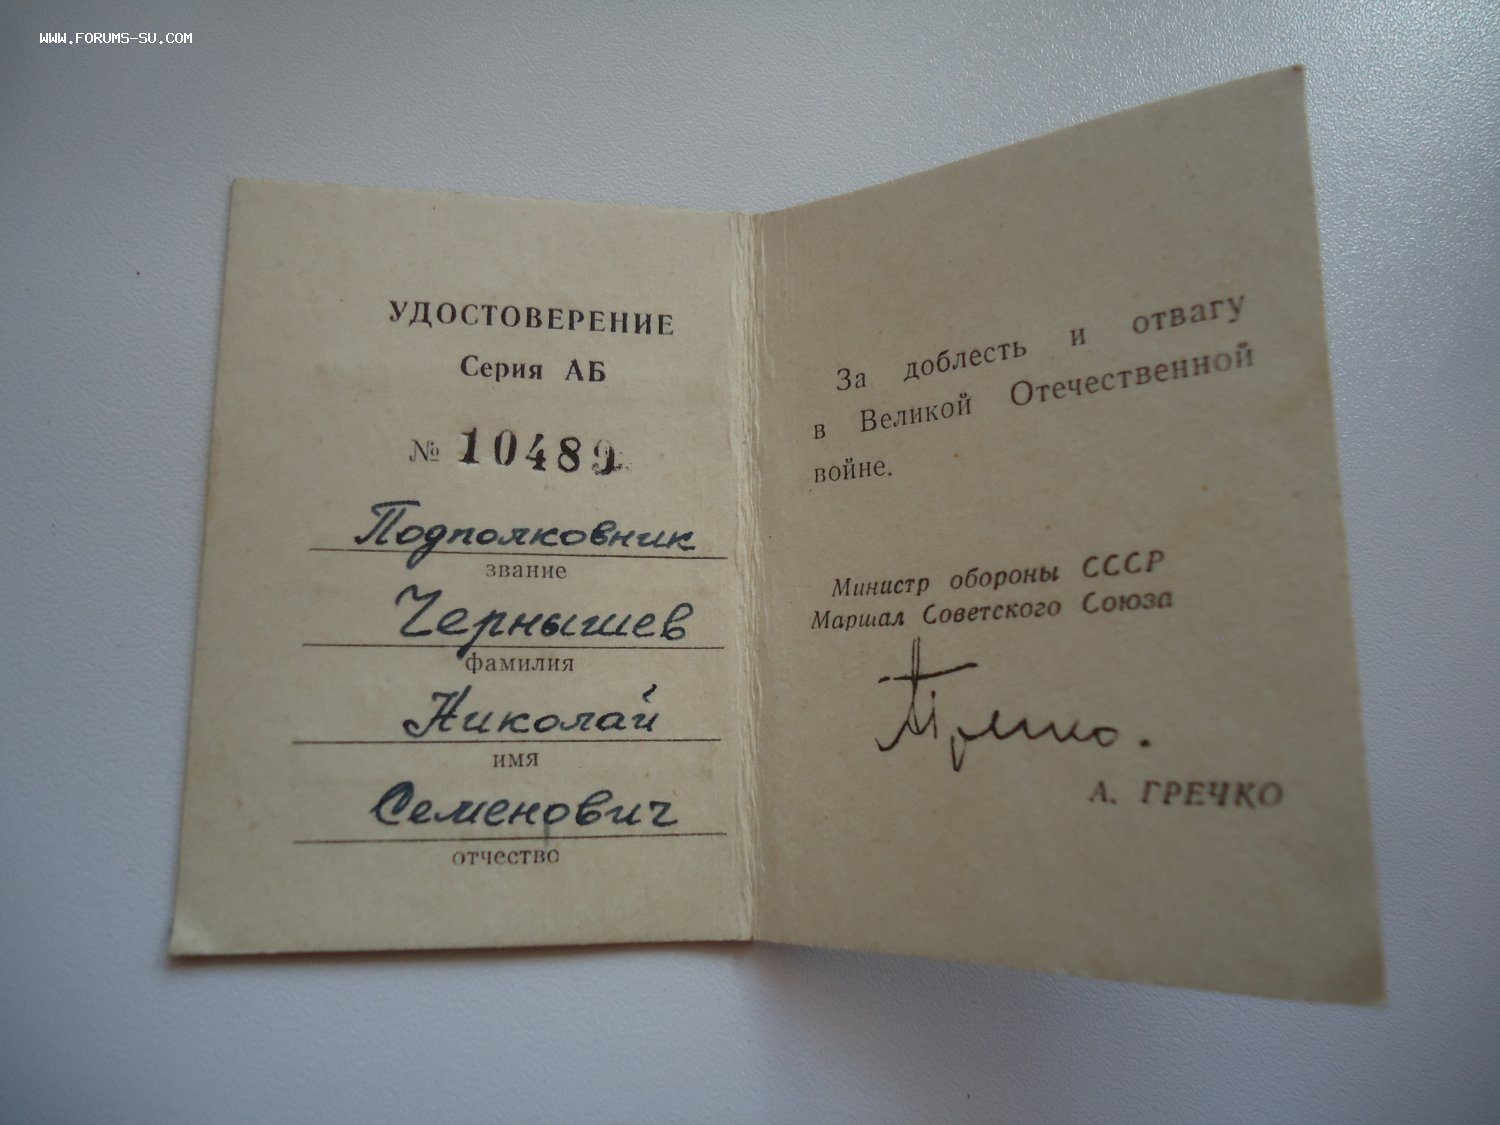 WWW.FORUMS-SU.COM
УДОСТОВЕРЕНИЕ
Серия АБ
№ 10489
Подполковник
звание
Чернышев
фамилия
Николай
имя
Семенович
отчество
За доблесть и отвагу
в Великой Отечественной
войне.
Министр обороны СССР
Маршал Советского Союза
АГречко.
А. ГРЕЧКО